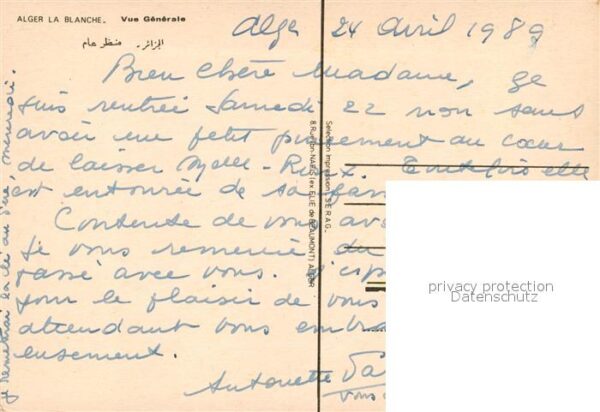 ALGER LA BLANCHE. Vue Générale
الجزائر. منظر عام
Alger 24 avril 1989
Bien Chère Madame, Je
suis rentrée Samedi 22 non sans
avoir eu un petit pincement au cœur
de laisser
est entourée de sa fam
Contente de vous avo
Je vous remercie du
passé avec vous.
pour le plaisir de vous
attendant vous emb
eusement.
Antoinette
vous
je remettrai la clé au père, mercredi.
Sélection Impression SERAG.
8, Rue Bon NAFIS (ex. ELIE de BEAUMONT) ALGER
privacy protection
Datenschutz